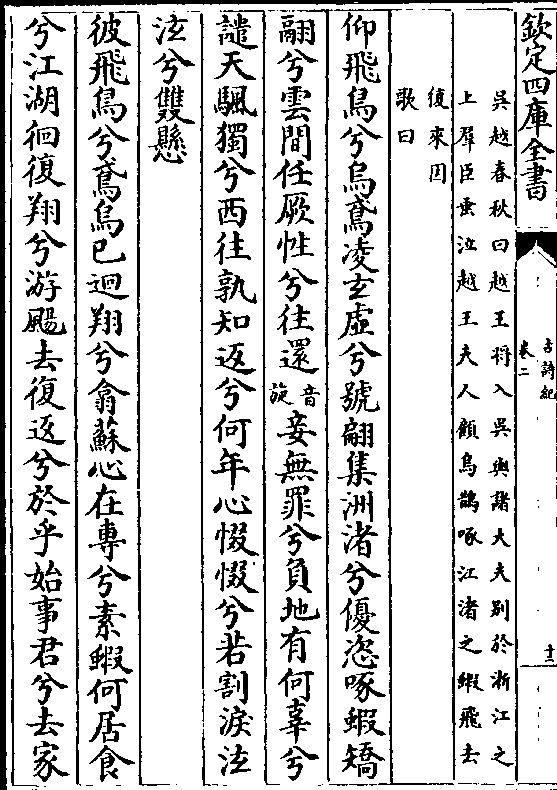 欽定四庫全書
古詩紀
卷二
十二
吳越春秋曰越王將入吳與諸大夫别於浙江之
上羣臣垂泣越王夫人顧烏鵲啄江渚之蝦飛去
復來因
歌曰
仰飛鳥兮烏鳶凌玄虚兮號翩集洲渚兮優恣啄蝦矯
翮兮雲間任厥性兮往還音旋妾無罪兮負地有何辜兮
譴天颿獨兮西往孰知返兮何年心惙惙兮若割淚泫
泫兮雙懸
彼飛鳥兮鳶烏已迴翔兮翕蘇心在專兮素蝦何居食
兮江湖徊復翔兮游颺去復返兮於乎始事君兮去家